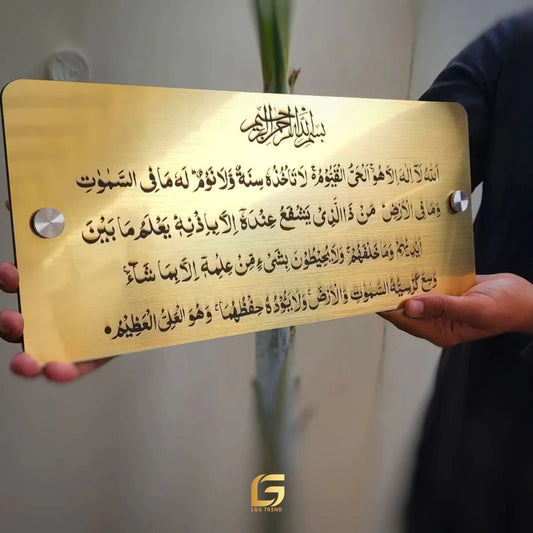 بسم الله الرحمن الرحيم
اَللّٰهُ لَآ اِلٰهَ اِلَّا هُوَۚ اَلْحَىُّ الْقَيُّوْمُ ۚ لَا تَاْخُذُهٗ سِنَةٌ وَّلَا نَوْمٌ ؕ لَهٗ مَا فِى السَّمٰوٰتِ
وَمَا فِى الْاَرْضِ ؕ مَنْ ذَا الَّذِىْ يَشْفَعُ عِنْدَهٗٓ اِلَّا بِاِذْنِهٖ ؕ يَعْلَمُ مَا بَيْنَ
اَيْدِيْهِمْ وَمَا خَلْفَهُمْ ۚ وَلَا يُحِيْطُوْنَ بِشَىْءٍ مِّنْ عِلْمِهٖٓ اِلَّا بِمَا شَآءَ ۚ
وَسِعَ كُرْسِيُّهُ السَّمٰوٰتِ وَالْاَرْضَ ۚ وَلَا يَـُٔوْدُهٗ حِفْظُهُمَا ۚ وَهُوَ الْعَلِىُّ الْعَظِيْمُ ۝
LGS TREND